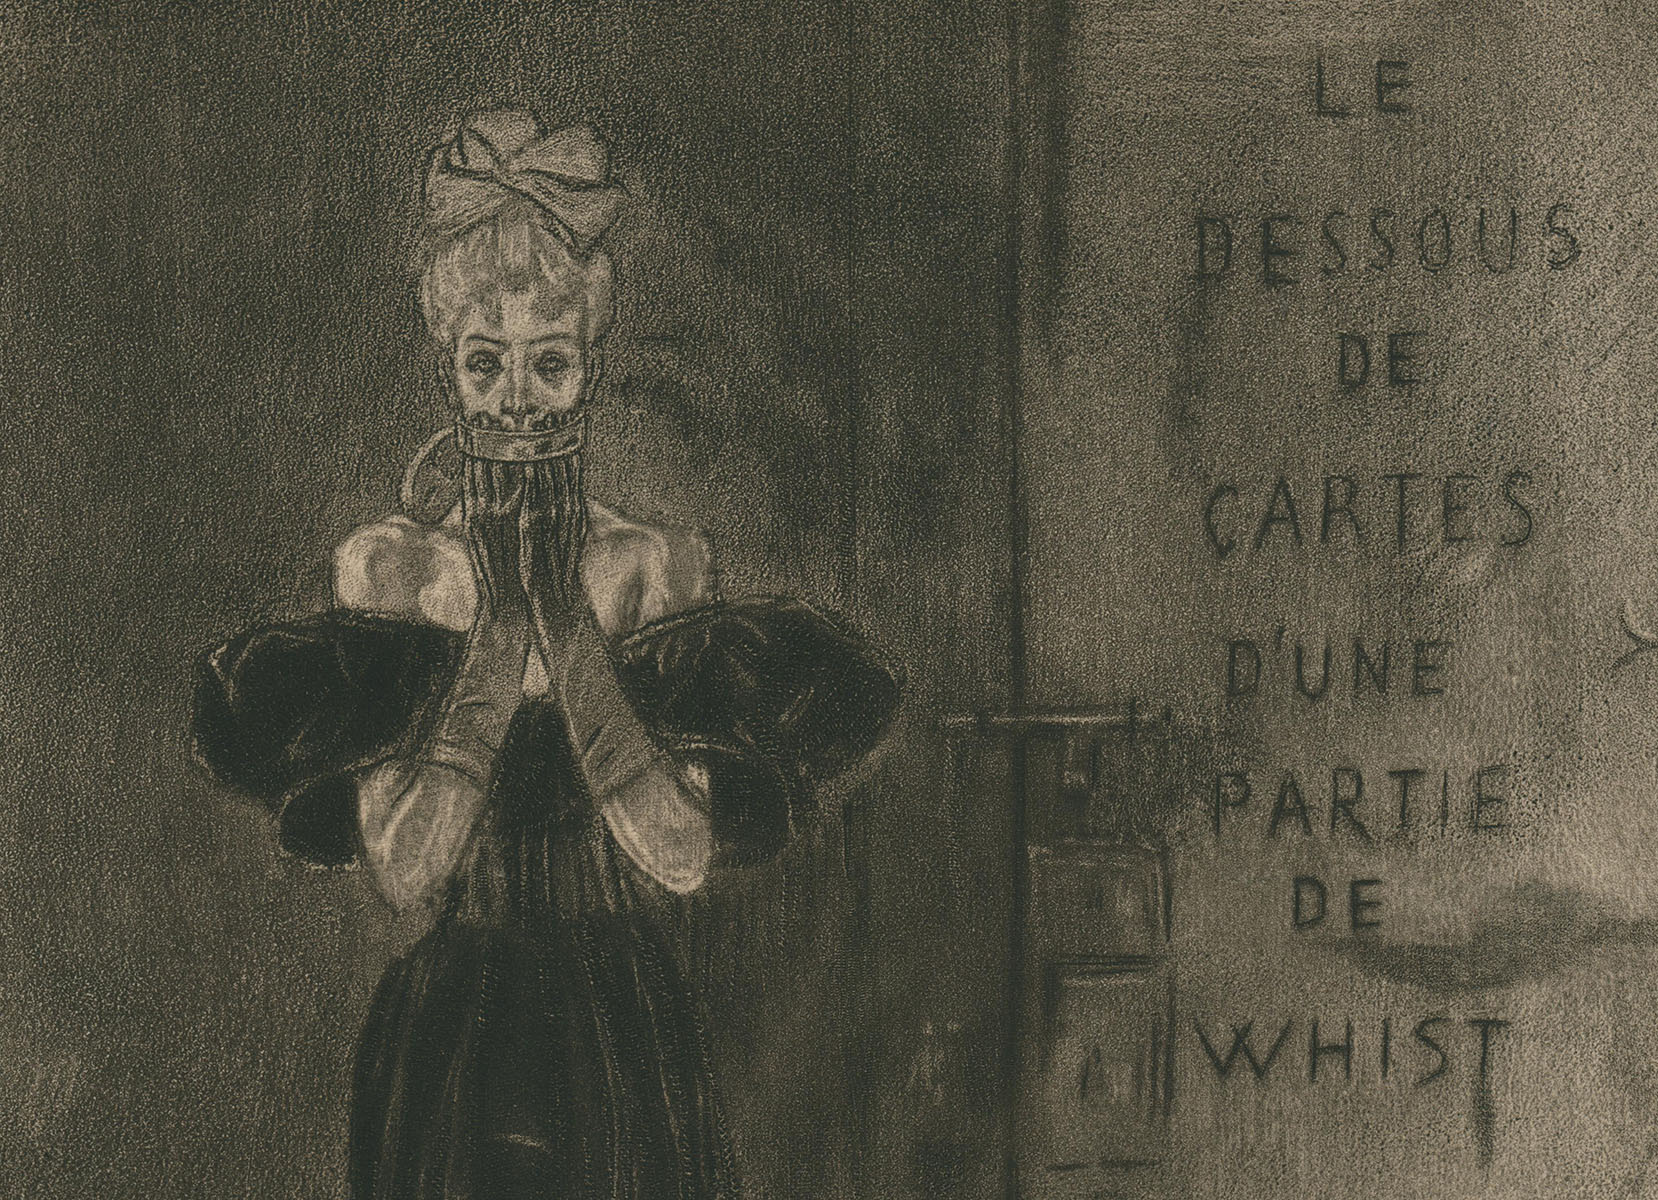 LE
DESSOUS
DE
CARTES
D'UNE
PARTIE
DE
WHIST